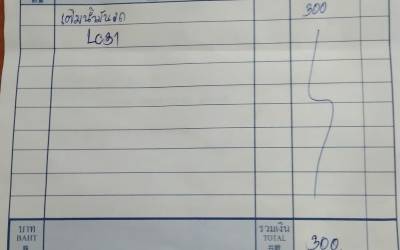 เติมน้ำมันรถ 300
LC31
บาท รวมเงิน
BAHT TOTAL 300